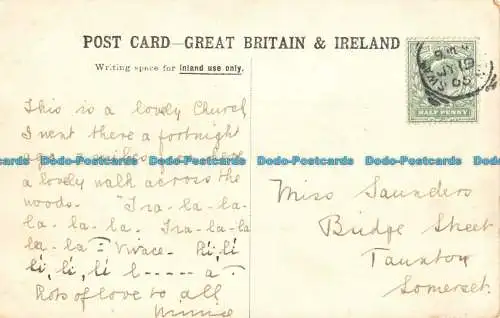 POST CARD—GREAT BRITAIN & IRELAND
Writing space for inland use only.
HALF PENNY
This is a lovely Church
I went there a fortnight
Dodo-Postcards Dodo-Postcards Dodo-Postcards Dodo-Postcards Dodo-Postcards
a lovely walk across the
woods. "Tra-la-la-
la-la-la. Tra-la-la
la-la = Vivace. Li, li
li, li, li l-----a-
Lots of love to all
Minnie
Miss Saunders
Bridge Street
Taunton
Somerset.